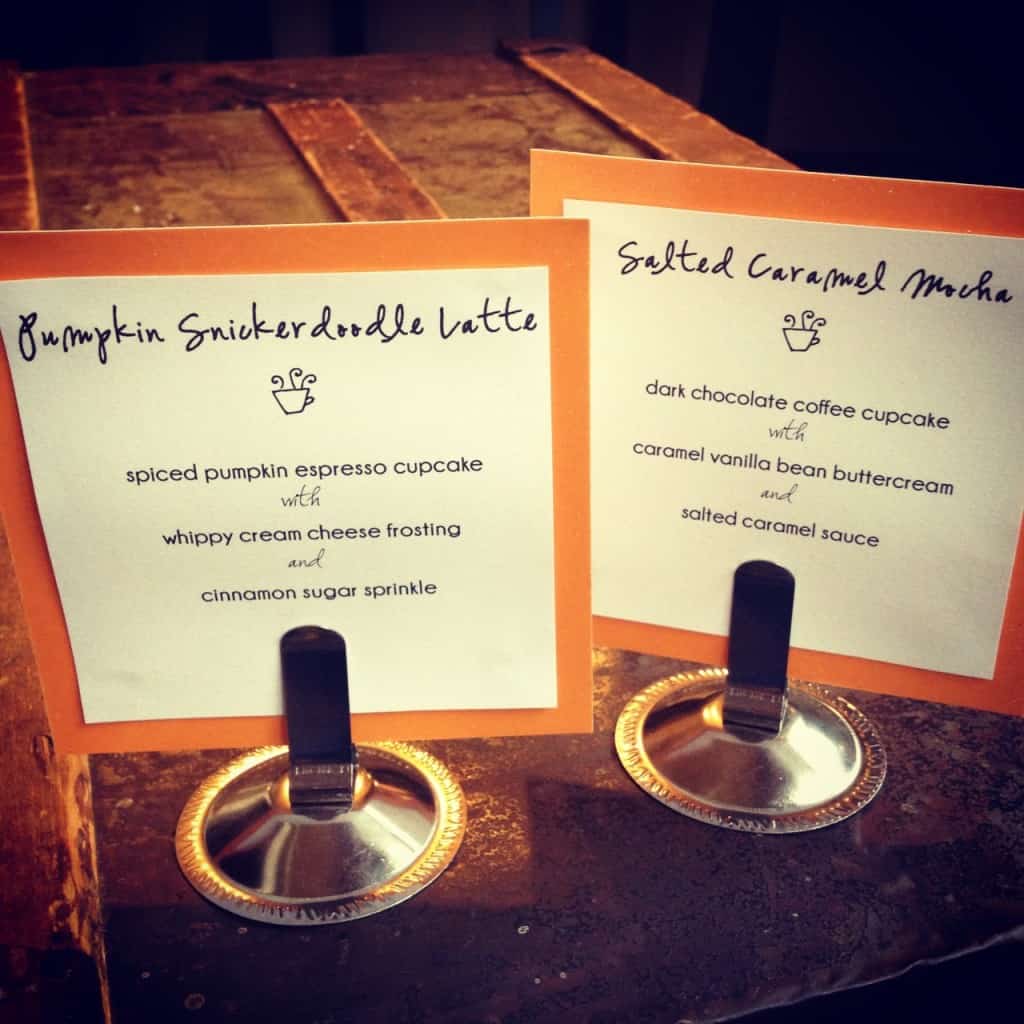 Pumpkin Snickerdoodle Latte
spiced pumpkin espresso cupcake
with
whippy cream cheese frosting
and
cinnamon sugar sprinkle
Salted Caramel Mocha
dark chocolate coffee cupcake
with
caramel vanilla bean buttercream
and
salted caramel sauce